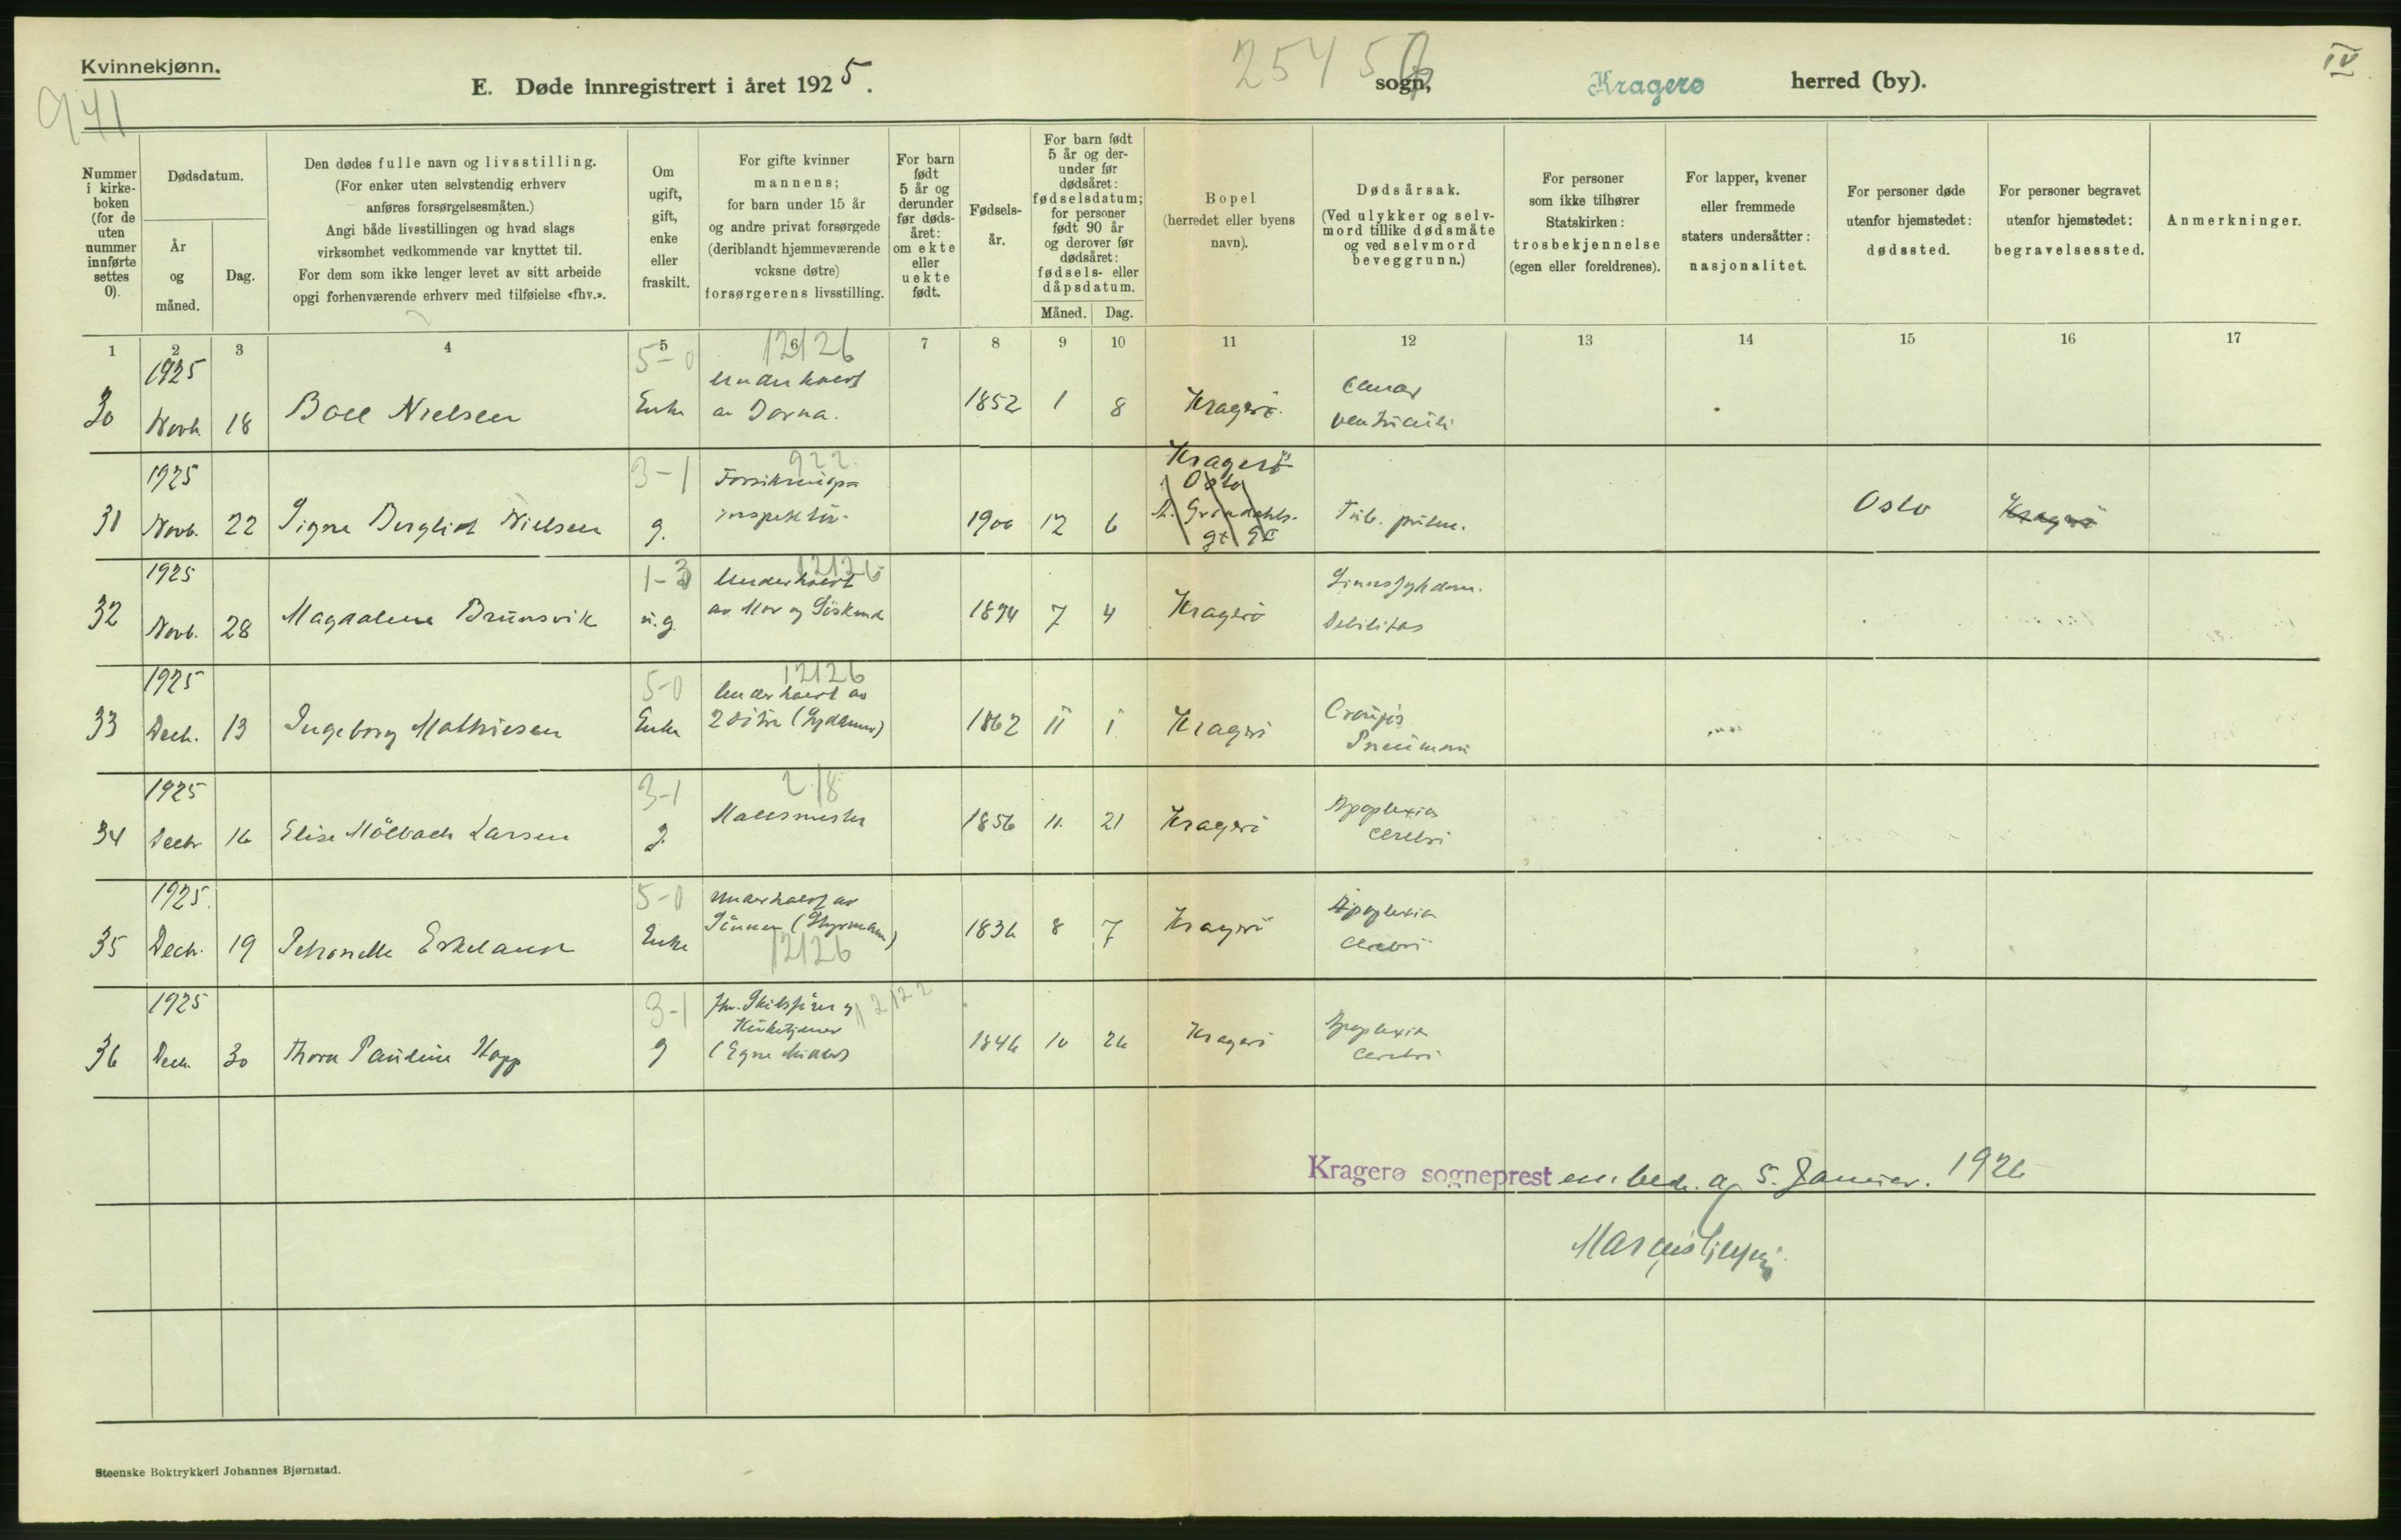 Kvinnekjønn.
941
E. Døde innregistrert i året 1925.
2545
sogn, Kragerø herred (by).
IV
Nummer i kirke-boken (for de uten nummer innførte settes 0).
Dødsdatum.
År og måned.
Dag.
Den dødes fulle navn og livsstilling.
(For enker uten selvstendig erhverv
anføres forsørgelsesmåten.)
Angi både livsstillingen og hvad slags
virksomhet vedkommende var knyttet til.
For dem som ikke lenger levet av sitt arbeide
opgi forhenværende erhverv med tilføielse «fhv.».
Om ugift, gift, enke eller fraskilt.
For gifte kvinner
mannens;
for barn under 15 år
og andre privat forsørgede
(deriblandt hjemmeværende
voksne døtre)
forsørgerens livsstilling.
For barn født 5 år og derunder før døds-året: om ekte eller uekte født.
Fødsels-år.
For barn født 5 år og der-under før dødsåret: fødselsdatum; for personer født 90 år og derover før dødsåret: fødsels- eller dåpsdatum.
Måned. Dag.
Bopel
(herredet eller byens
navn).
Dødsårsak.
(Ved ulykker og selv-
mord tillike dødsmåte
og ved selvmord
beveggrunn.)
For personer
som ikke tilhører
Statskirken:
trosbekjennelse
(egen eller foreldrenes).
For lapper, kvener
eller fremmede
staters undersåtter:
nasjonalitet.
For personer døde
utenfor hjemstedet:
dødssted.
For personer begravet
utenfor hjemstedet:
begravelsessted.
Anmerkninger.
1 2 3 4 5 6 7 8 9 10 11 12 13 14 15 16 17
1925 5-0 12126
30 Novb. 18 Boel Nielsen Enke Underholdt av Dorna. 1852 1 8 Kragerö. Cancer ventriculi
1925 3-1 922
31 Novb. 22 Signe Bergliot Nielsen g. Forsikrings= inspektör. 1900 12 6 Kragerö Oslo Tub. pulm. Oslo Kragerö
1925 1-3 12126
32 Novb. 28 Magdalene Brunsvik u.g. Underholdt av Mor og Söskend 1894 7 4 Kragerö Sinnssykdom. Debilitas
1925 5-0 12126
33 Decb. 13 Ingeborg Mathiesen Enke Underholdt av 2 döttre 1862 11 1 Kragerö Croupös Pneumoni
1925 3-1 218
34 Decbr 16 Elise Mölbach Larsen g. Malermester 1856 11. 21 Kragerö Apoplexia cerebri
1925. 5-0
35 Decb. 19 Petronelle Eskeland Enke Underholdt av Sönnen (Styrmann) 12126 1836 8 7 Kragerö Apoplexia cerebri
1925 3-1 12122
36 Decb. 30 Thora Pauline Kopp g fhv. Skibsförer og Kirketjener (Egne midler) 1846 10 26 Kragerö Apoplexia cerebri
Kragerø sogneprest embede. 5. Januar. 1926
Steenske Boktrykkeri Johannes Bjørnstad.